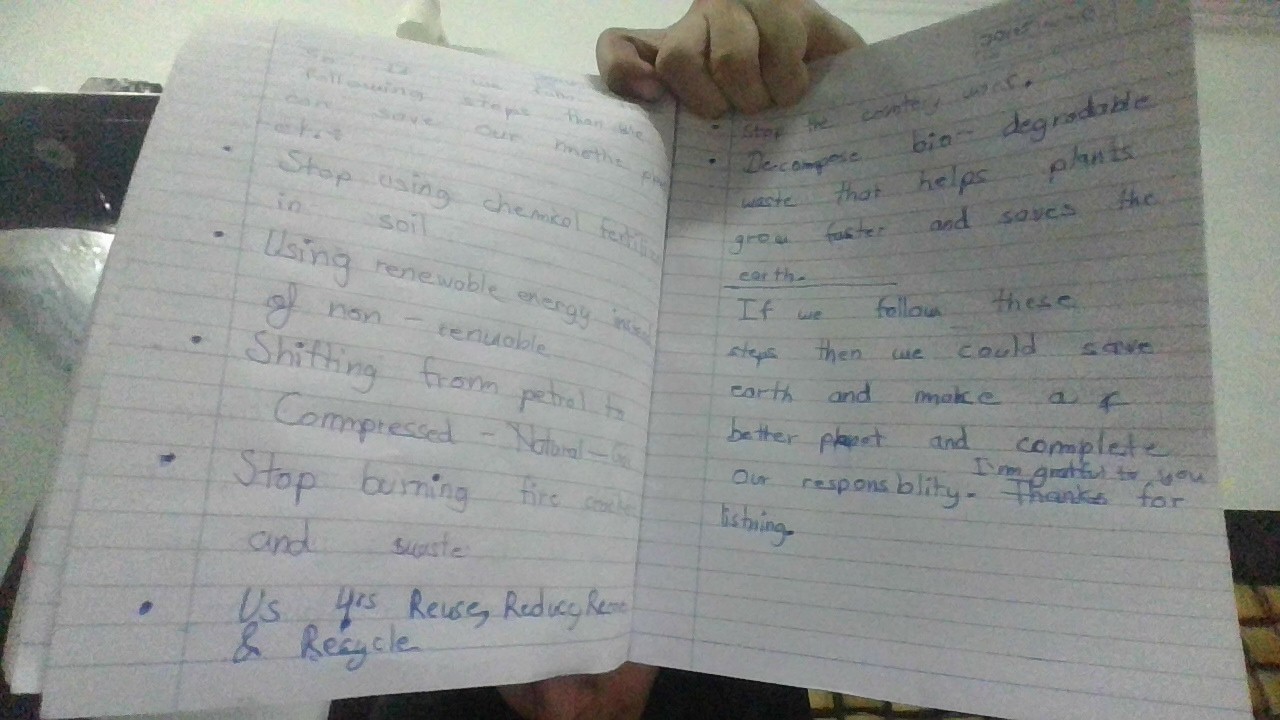 following steps than we
can save our mothe
etc:
• Stop using chemical
in soil
• Using renewable energy
of non - renuable
• Shifting from petrol to
Commpressed - Natural -
• Stop burning fire
and waste
• Us 4rs Reuse, Reduce,
& Recycle
• Stop the
• Decompose bio- degradable
waste that helps plants
grow faster and saves the
earth.
If we follow these
steps then we could save
earth and make a
better planet and complete
our responsblity. I'm gratful to you
Thanks for
listning.